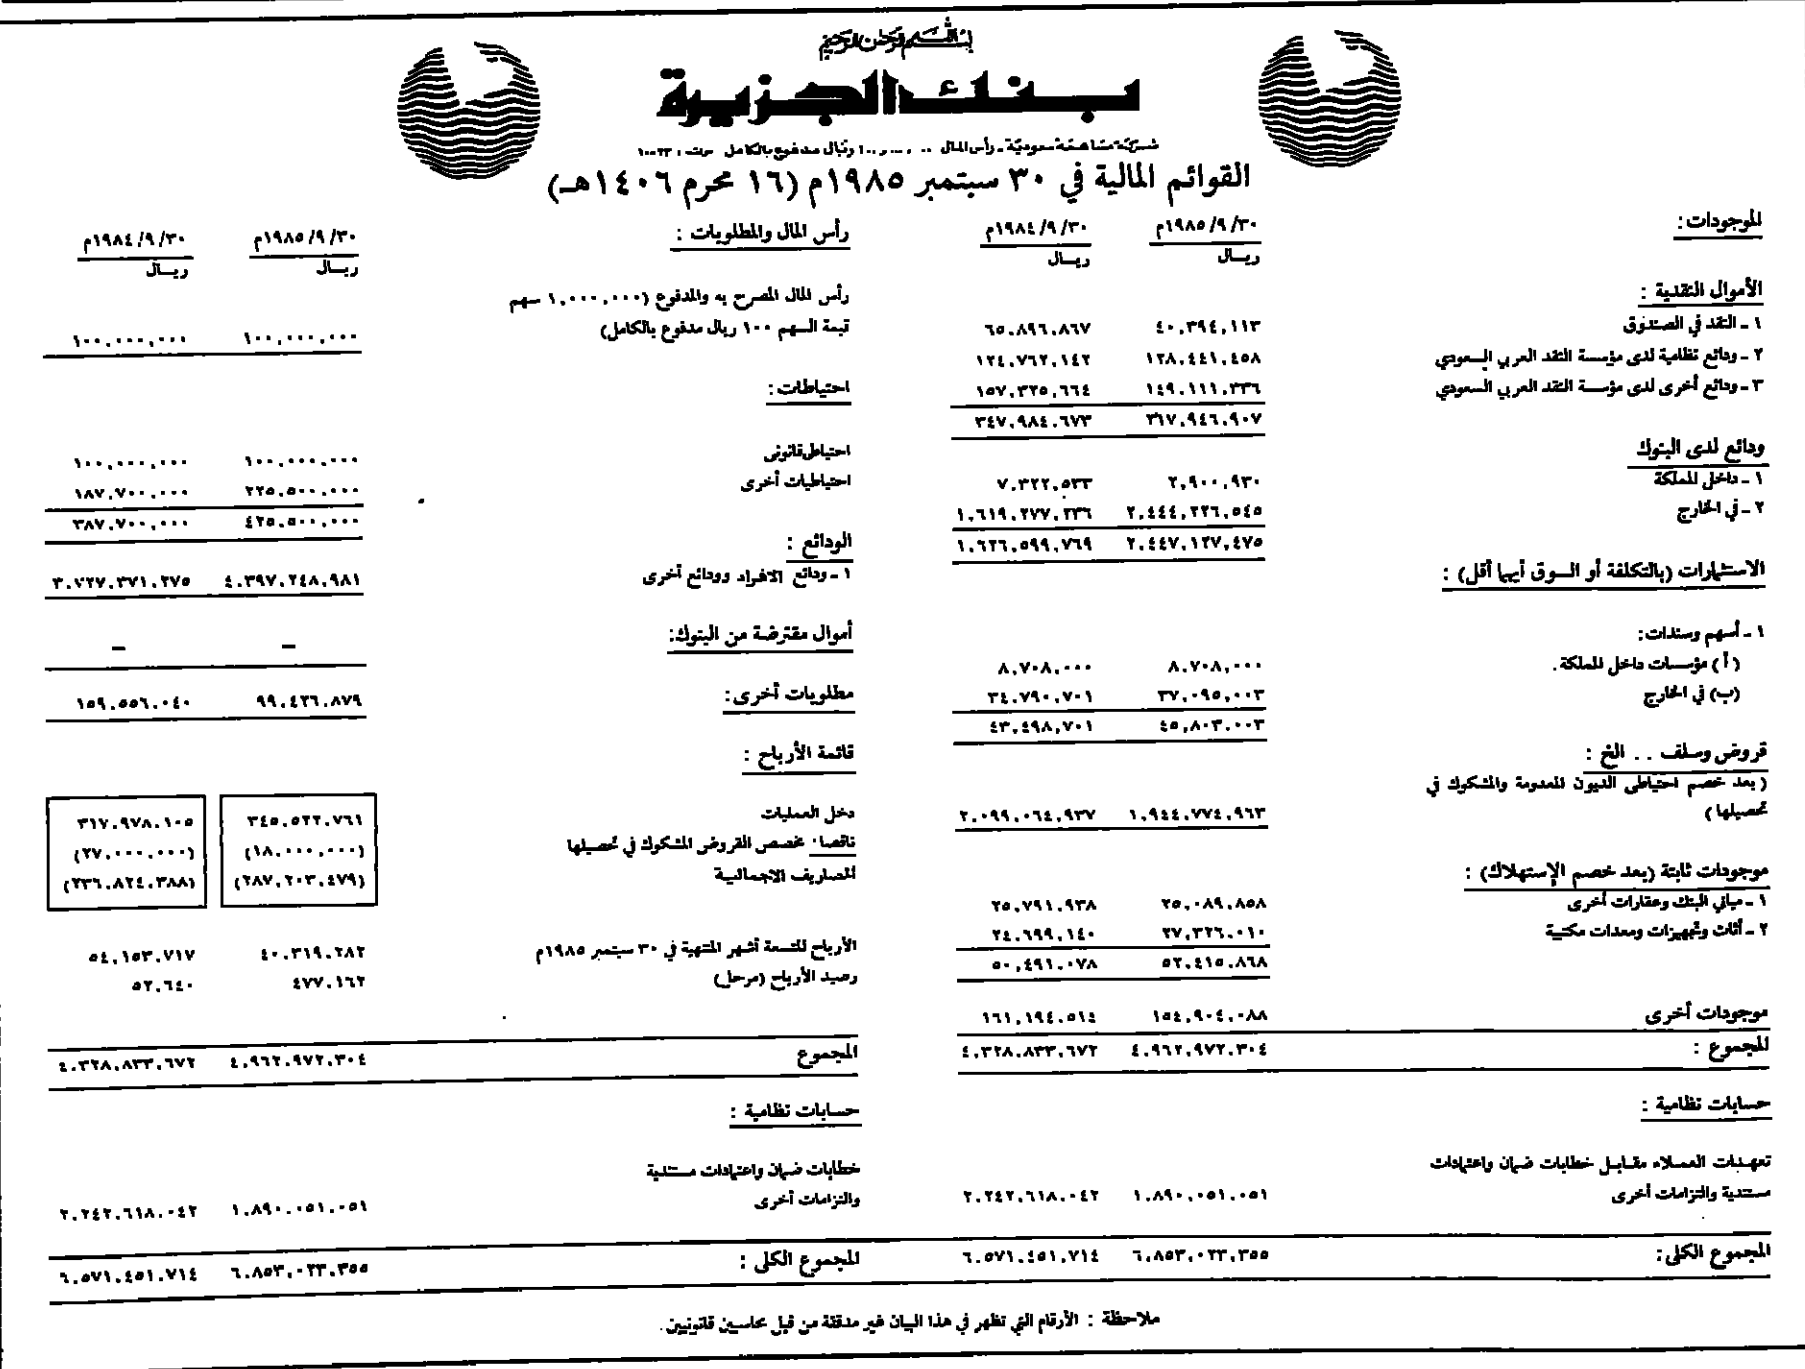 بسم الله الرحمن الرحيم
بنك الجزيرة
شركة مساهمة سعودية - رأس المال ١٠٠,٠٠٠,٠٠٠ ريال مدفوع بالكامل
القوائم المالية في ٣٠ سبتمبر ١٩٨٥م (١٦ محرم ١٤٠٦هـ)
الموجودات: ٣٠/٩/١٩٨٥م ٣٠/٩/١٩٨٤م
ريـال ريـال
الأموال النقدية :
١ ـ النقد في الصندوق ٤٠,٣٩٤,١١٣ ٦٥,٨٩٦,٨٦٧
٢ ـ ودائع نظامية لدى مؤسسة النقد العربي السعودي ١٢٨,٤٤١,٤٥٨ ١٢٤,٧٦٢,١٤٢
٣ ـ ودائع أخرى لدى مؤسسة النقد العربي السعودي ١٤٩,١١١,٣٣٦ ١٥٧,٣٢٥,٦٦٤
٣١٧,٩٤٦,٩٠٧ ٣٤٧,٩٨٤,٦٧٣
ودائع لدى البنوك
١ ـ داخل المملكة ٢,٩٠٠,٩٣٠ ٧,٣٢٢,٥٣٣
٢ ـ في الخارج ٢,٤٤٤,٢٢٦,٥٤٥ ١,٦١٩,٢٧٧,٢٣٦
٢,٤٤٧,١٢٧,٤٧٥ ١,٦٢٦,٥٩٩,٧٦٩
الاستثمارات (بالتكلفة أو السوق أيهما أقل) :
١ ـ أسهم وسندات:
(أ) مؤسسات داخل المملكة. ٨,٧٠٨,٠٠٠ ٨,٧٠٨,٠٠٠
(ب) في الخارج ٣٧,٠٩٥,٠٠٣ ٣٤,٧٩٠,٧٠١
٤٥,٨٠٣,٠٠٣ ٤٣,٤٩٨,٧٠١
قروض وسلف . . الخ :
(بعد خصم احتياطى الديون المعدومة والمشكوك في
تحصيلها) ١,٩٤٤,٧٧٤,٩٦٣ ٢,٠٩٩,٠٦٤,٩٣٧
موجودات ثابتة (بعد خصم الإستهلاك) :
١ ـ مباني البنك وعقارات أخرى ٢٥,٠٨٩,٨٥٨ ٢٥,٧٩١,٩٣٨
٢ ـ أثاث وتجهيزات ومعدات مكتبية ٢٧,٣٢٦,٠١٠ ٢٤,٦٩٩,١٤٠
٥٢,٤١٥,٨٦٨ ٥٠,٤٩١,٠٧٨
موجودات أخرى ١٥٤,٩٠٤,٠٨٨ ١٦١,١٩٤,٥١٤
المجموع : ٤,٩٦٢,٩٧٢,٣٠٤ ٤,٣٢٨,٨٣٣,٦٧٢
حسابات نظامية :
تعهدات العملاء مقابل خطابات ضمان واعتمادات
مستندية والتزامات أخرى ١,٨٩٠,٠٥١,٠٥١ ٢,٢٤٢,٦١٨,٠٤٢
المجموع الكلى: ٦,٨٥٣,٠٢٣,٣٥٥ ٦,٥٧١,٤٥١,٧١٤
رأس المال والمطلوبات : ٣٠/٩/١٩٨٥م ٣٠/٩/١٩٨٤م
ريـال ريـال
رأس المال المصرح به والمدفوع (١,٠٠٠,٠٠٠ سهم
قيمة السهم ١٠٠ ريال مدفوع بالكامل) ١٠٠,٠٠٠,٠٠٠ ١٠٠,٠٠٠,٠٠٠
احتياطات:
احتياطى قانونى ١٠٠,٠٠٠,٠٠٠ ١٠٠,٠٠٠,٠٠٠
احتياطيات أخرى ٢٢٥,٥٠٠,٠٠٠ ١٨٧,٧٠٠,٠٠٠
٤٢٥,٥٠٠,٠٠٠ ٣٨٧,٧٠٠,٠٠٠
الودائع :
١ ـ ودائع الافراد وودائع أخرى ٤,٣٩٧,٢٤٨,٩٨١ ٣,٧٢٧,٣٧١,٢٧٥
أموال مقترضة من البنوك: – –
مطلوبات أخرى: ٩٩,٤٢٦,٨٧٩ ١٥٩,٥٥٦,٠٤٠
قائمة الأرباح :
دخل العمليات ٣٤٥,٥٢٢,٧٦١ ٣١٧,٩٧٨,١٠٥
ناقصا: مخصص القروض المشكوك في تحصيلها (١٨,٠٠٠,٠٠٠) (٢٧,٠٠٠,٠٠٠)
المصاريف الاجمالية (٢٨٧,٢٠٣,٤٧٩) (٢٣٦,٨٢٤,٣٨٨)
الأرباح للتسعة أشهر المنتهية في ٣٠ سبتمبر ١٩٨٥م ٤٠,٣١٩,٢٨٢ ٥٤,١٥٣,٧١٧
رصيد الأرباح (مرحل) ٤٧٧,١٦٢ ٥٢,٦٤٠
المجموع ٤,٩٦٢,٩٧٢,٣٠٤ ٤,٣٢٨,٨٣٣,٦٧٢
حسابات نظامية :
خطابات ضمان واعتمادات مستندية
والتزامات أخرى ١,٨٩٠,٠٥١,٠٥١ ٢,٢٤٢,٦١٨,٠٤٢
المجموع الكلى : ٦,٨٥٣,٠٢٣,٣٥٥ ٦,٥٧١,٤٥١,٧١٤
ملاحظة : الأرقام التي تظهر في هذا البيان غير مدققة من قبل محاسبين قانونيين.